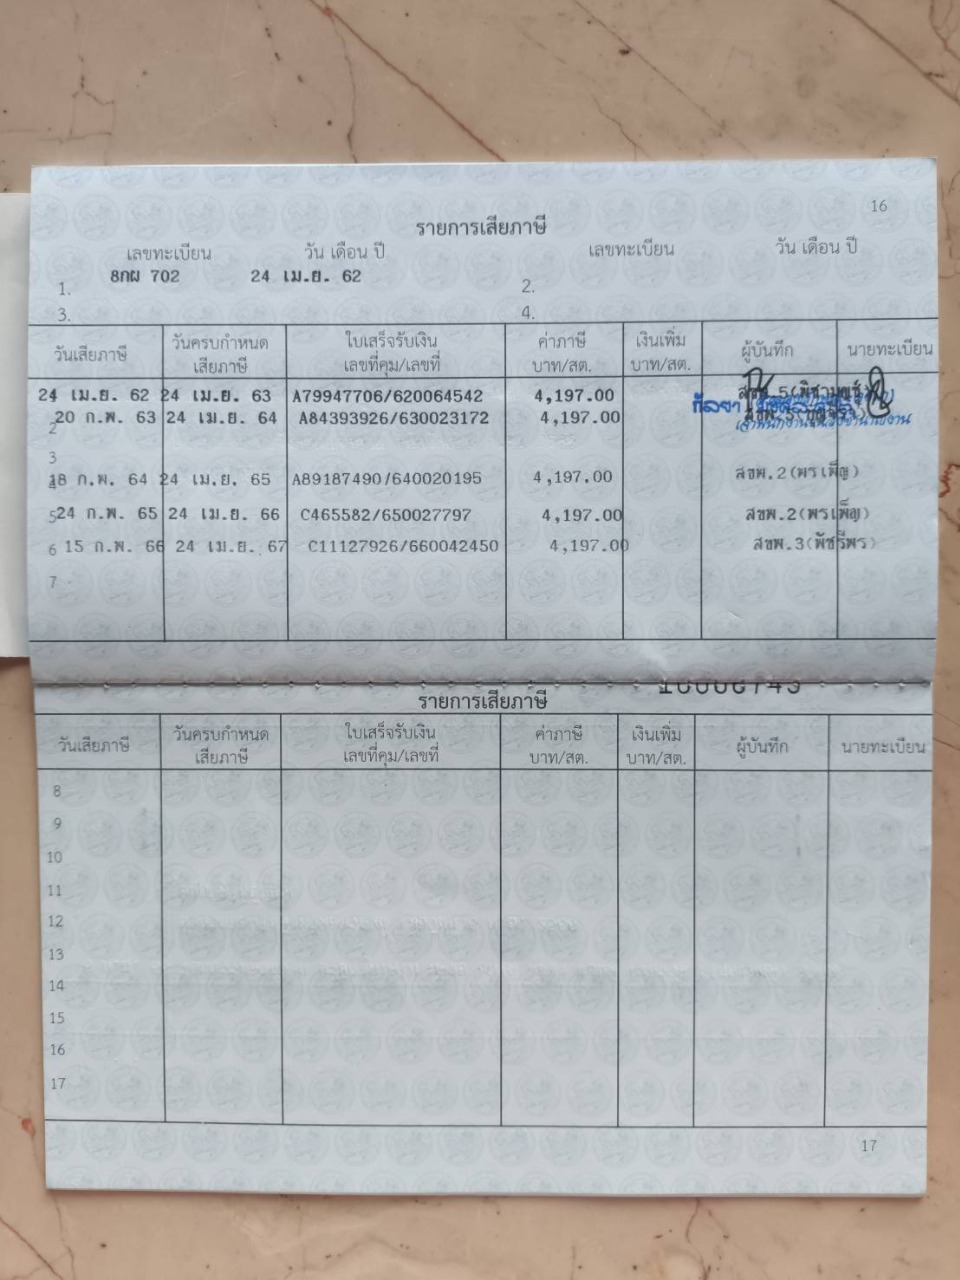 16
รายการเสียภาษี
เลขทะเบียน วัน เดือน ปี เลขทะเบียน วัน เดือน ปี
1. 8กผ 702 24 เม.ย. 62 2.
3. 4.
วันเสียภาษี วันครบกำหนดเสียภาษี ใบเสร็จรับเงิน เลขที่คุม/เลขที่ ค่าภาษี บาท/สต. เงินเพิ่ม บาท/สต. ผู้บันทึก นายทะเบียน
24 เม.ย. 62 24 เม.ย. 63 A79947706/620064542 4,197.00
2 20 ก.พ. 63 24 เม.ย. 64 A84393926/630023172 4,197.00
3
4 18 ก.พ. 64 24 เม.ย. 65 A89187490/640020195 4,197.00 สขพ.2(พรเพ็ญ)
5 24 ก.พ. 65 24 เม.ย. 66 C465582/650027797 4,197.00 สขพ.2(พรเพ็ญ)
6 15 ก.พ. 66 24 เม.ย. 67 C11127926/660042450 4,197.00 สขพ.3(พัชรีพร)
7
รายการเสียภาษี
วันเสียภาษี วันครบกำหนดเสียภาษี ใบเสร็จรับเงิน เลขที่คุม/เลขที่ ค่าภาษี บาท/สต. เงินเพิ่ม บาท/สต. ผู้บันทึก นายทะเบียน
8
9
10
11
12
13
14
15
16
17
17